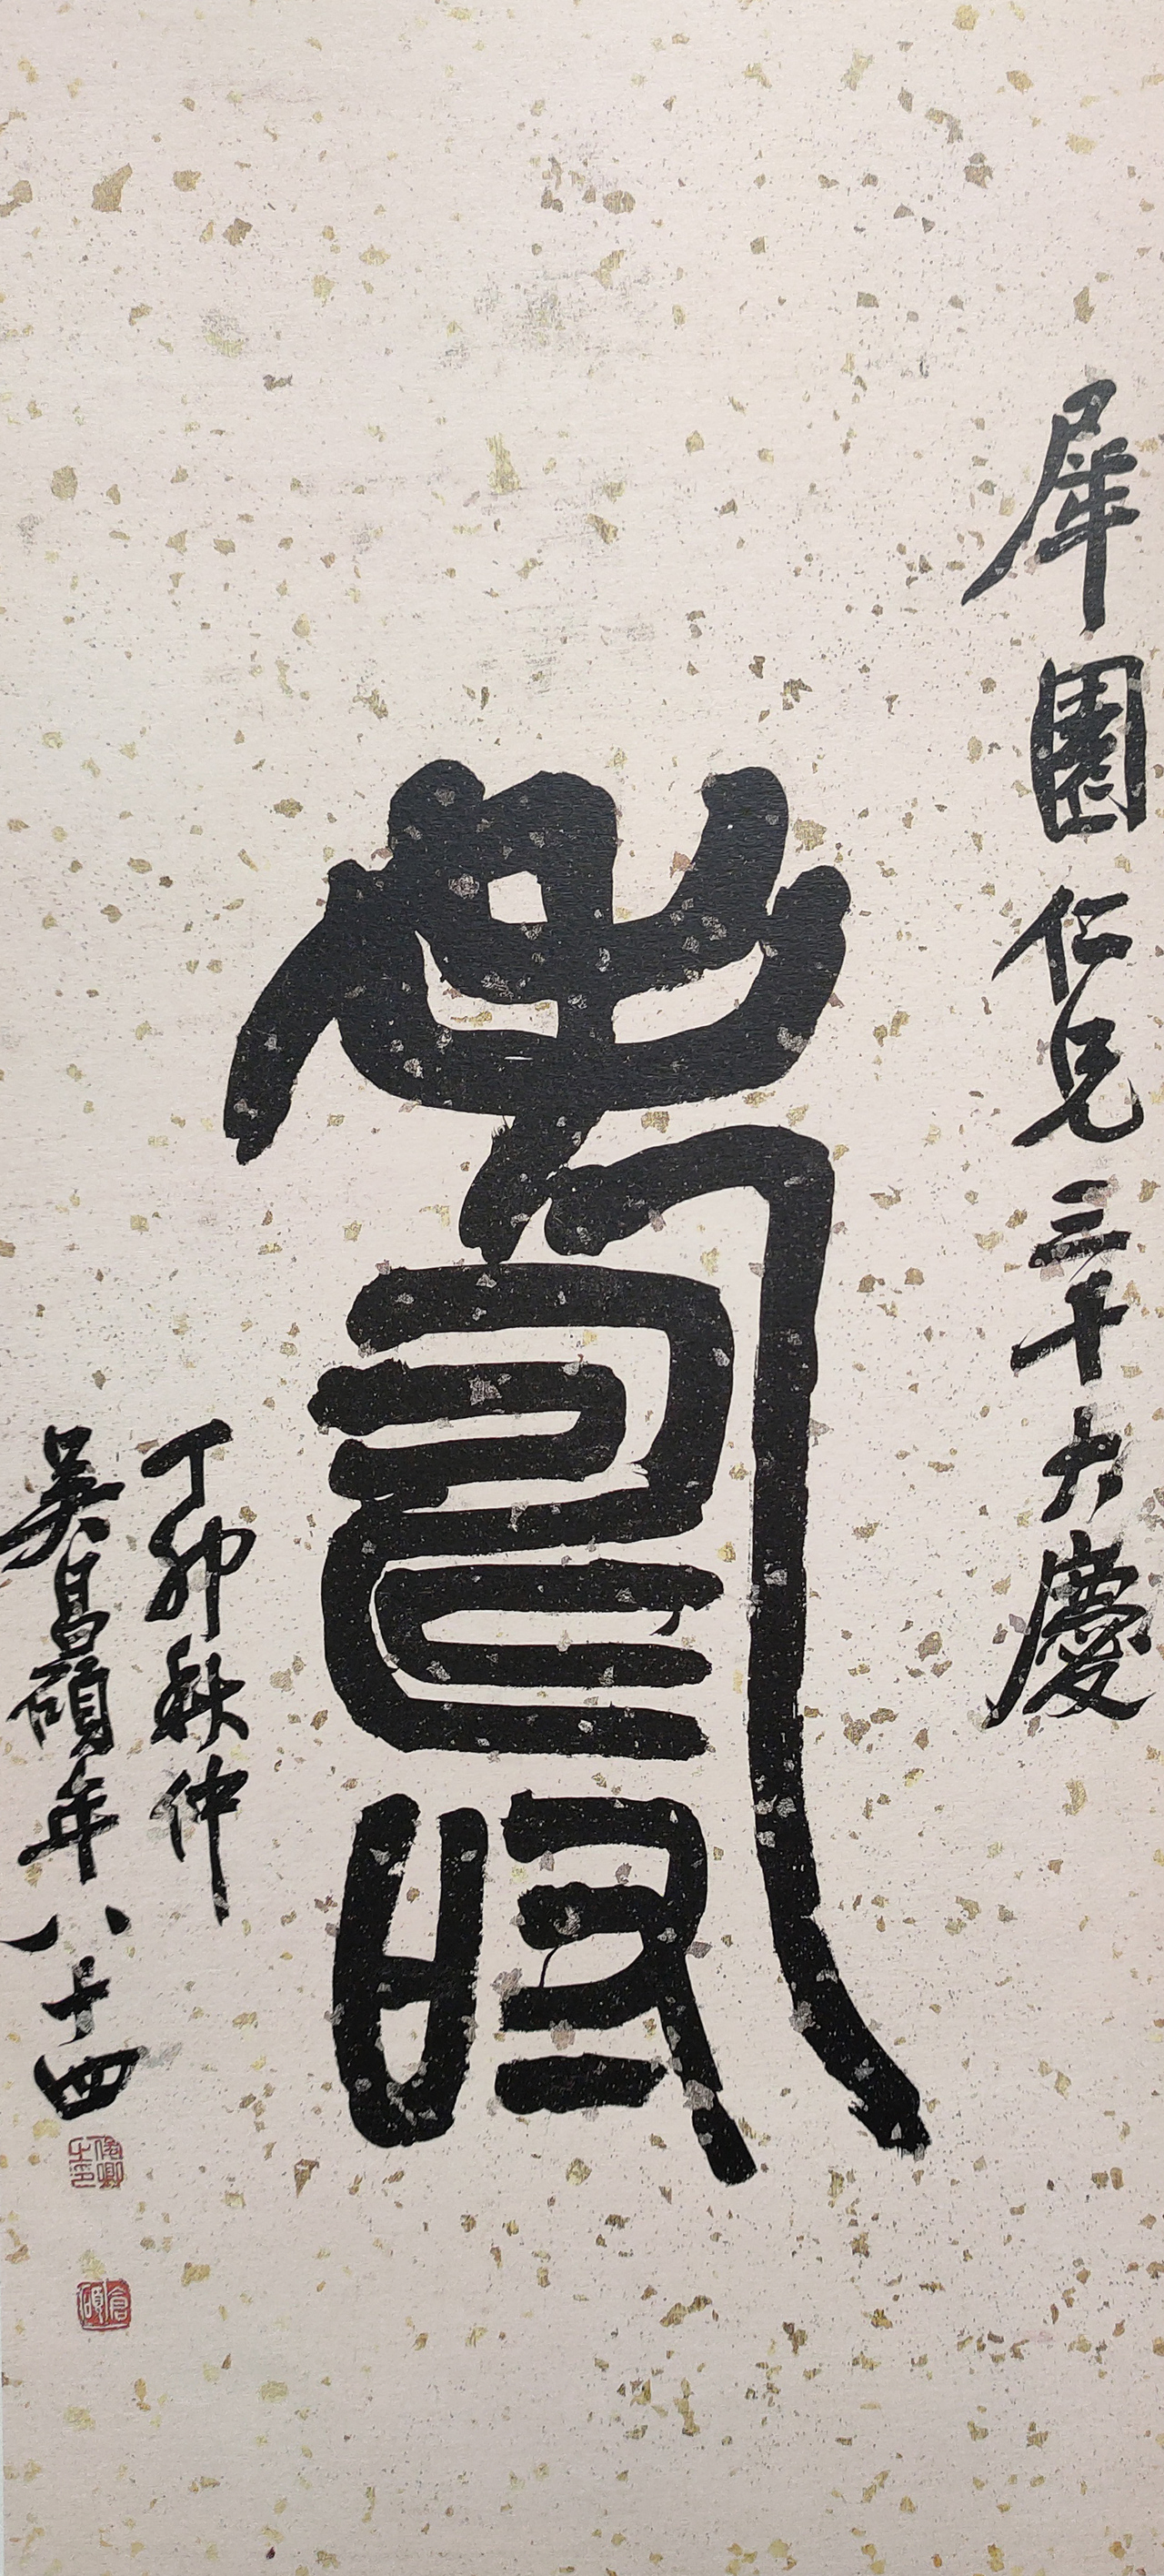 犀園仁兄三十大慶
壽
丁卯秋仲
吳昌碩年八十四
俊卿之印
倉碩